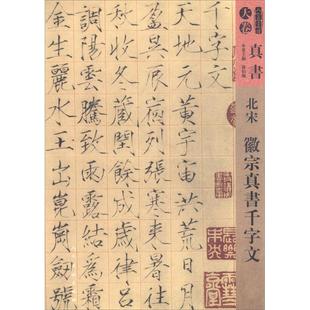 大卷
真書
北宋
徽宗真書千字文
千字文
天地玄黃宇宙洪荒日月
盈昃辰宿列張寒來暑往
秋收冬藏閏餘成歲律呂
調陽雲騰致雨露結為霜
金生麗水玉出崑崗劍號